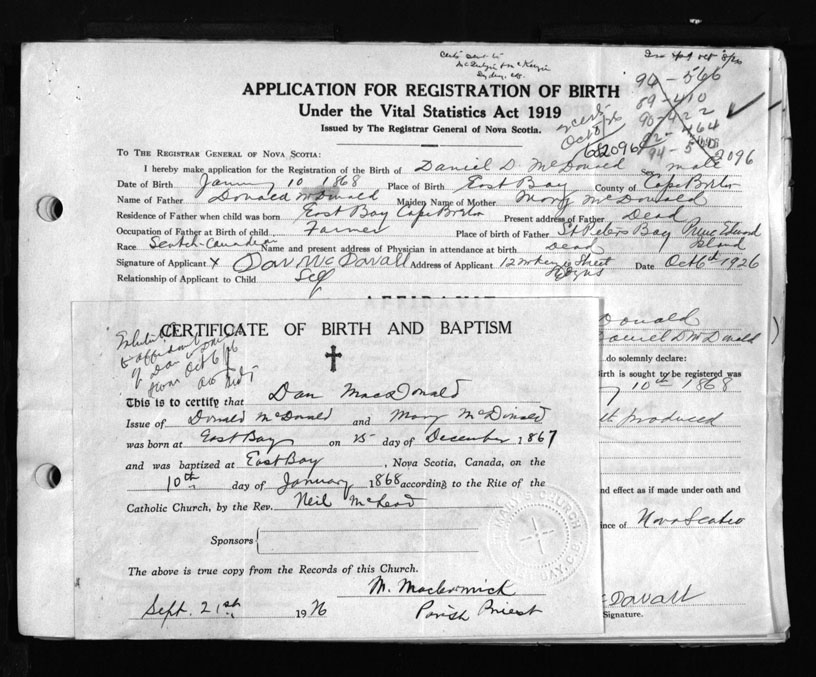 APPLICATION FOR REGISTRATION OF BIRTH
Under the Vital Statistics Act 1919
Issued by The Registrar General of Nova Scotia.
90-566
69-410
2096
TO THE REGISTRAR GENERAL OF NOVA SCOTIA:
I hereby make application for the Registration of the Birth of Daniel D. McDonald Sex male
Date of Birth January 10 1868 Place of Birth East Bay County of Cape Breton
Name of Father Donald McDonald Maiden Name of Mother Mary McDonald
Residence of Father when child was born East Bay Cape Breton Present address of Father Dead
Occupation of Father at Birth of child Farmer Place of birth of Father St Peters Bay Prince Edward Island
Race Scotch-Canadian Name and present address of Physician in attendance at birth Dead
Signature of Applicant X Dan McDavall Address of Applicant 12 Street Date Oct 6th 1926
Relationship of Applicant to Child Self
AFFIDAVIT
Donald
Daniel D McDonald
do solemnly declare:
Birth is sought to be registered was
10th 1868
produced
nd effect as if made under oath and
ince of Nova Scotia
cDavall
Signature.
CERTIFICATE OF BIRTH AND BAPTISM
to affidavit
of Dan
This is to certify that Dan MacDonald
Issue of Donald McDonald and Mary McDonald
was born at East Bay on 25 day of December 1867
and was baptized at East Bay, Nova Scotia, Canada, on the
10th day of January 1868 according to the Rite of the
Catholic Church, by the Rev. Neil McLeod
Sponsors
The above is true copy from the Records of this Church.
M. MacCormick
Sept. 21st 1926 Parish Priest